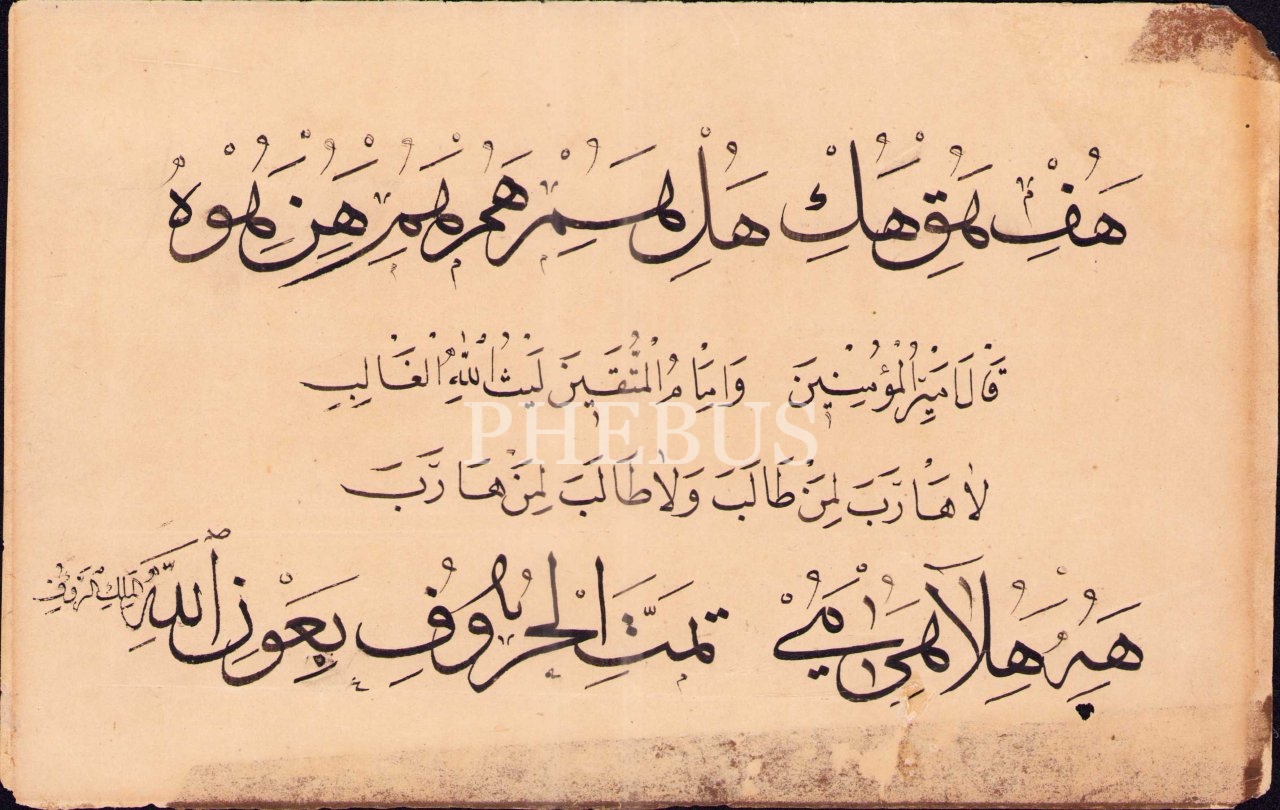 هَفِ هَقِ هَكِ هَلِ هَسِمْ هَمْ هَمِ هَنِ هَوْهُ
قَالَ اَمِيْرُ الْمُؤْمِنِينَ وَاِمَامُ الْمُتَّقِينَ لَيْثُ اللّٰهِ الْغَالِبِ
لَا هَارَبَ لِمَنْ طَالَبَ وَلَا طَالَبَ لِمَنْ هَارَبَ
هَلَا تَمَّتِ الْحُرُوفِ بِعَوْنِ اللّٰهِ الْمَلِكِ الرَّؤُفِ
PHEBUS